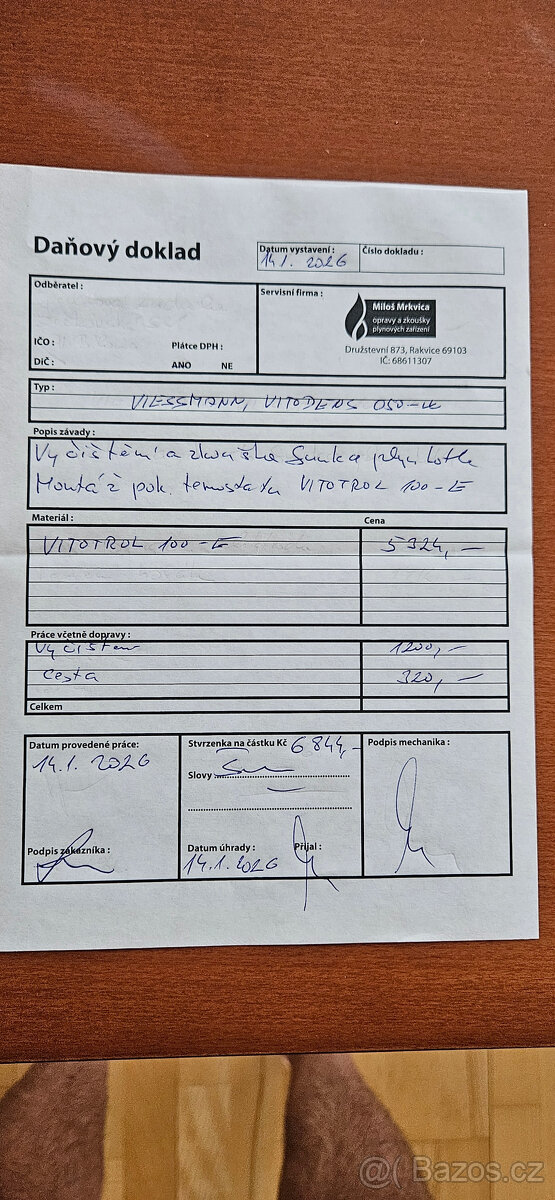 Daňový doklad
Datum vystavení :
14.1. 2026
Číslo dokladu :
Odběratel :
IČO :
Plátce DPH :
DIČ :
ANO NE
Servisní firma :
Miloš Mrkvica
opravy a zkoušky
plynových zařízení
Družstevní 873, Rakvice 69103
IČ: 68611307
Typ :
VIESSMANN, VITODENS 050-W
Popis závady :
Vyčištění a zkouška funkce plyn kotle
Montáž pok. termostatu VITOTROL 100-E
Materiál :
Cena
VITOTROL 100-E 5324,-
Práce včetně dopravy :
Vyčištění 1200,-
Cesta 320,-
Celkem
Datum provedené práce:
14.1. 2026
Podpis zákazníka :
Stvrzenka na částku Kč 6844,-
Slovy
Datum úhrady : Přijal :
14.1.2026
Podpis mechanika :
@ Bazos.cz